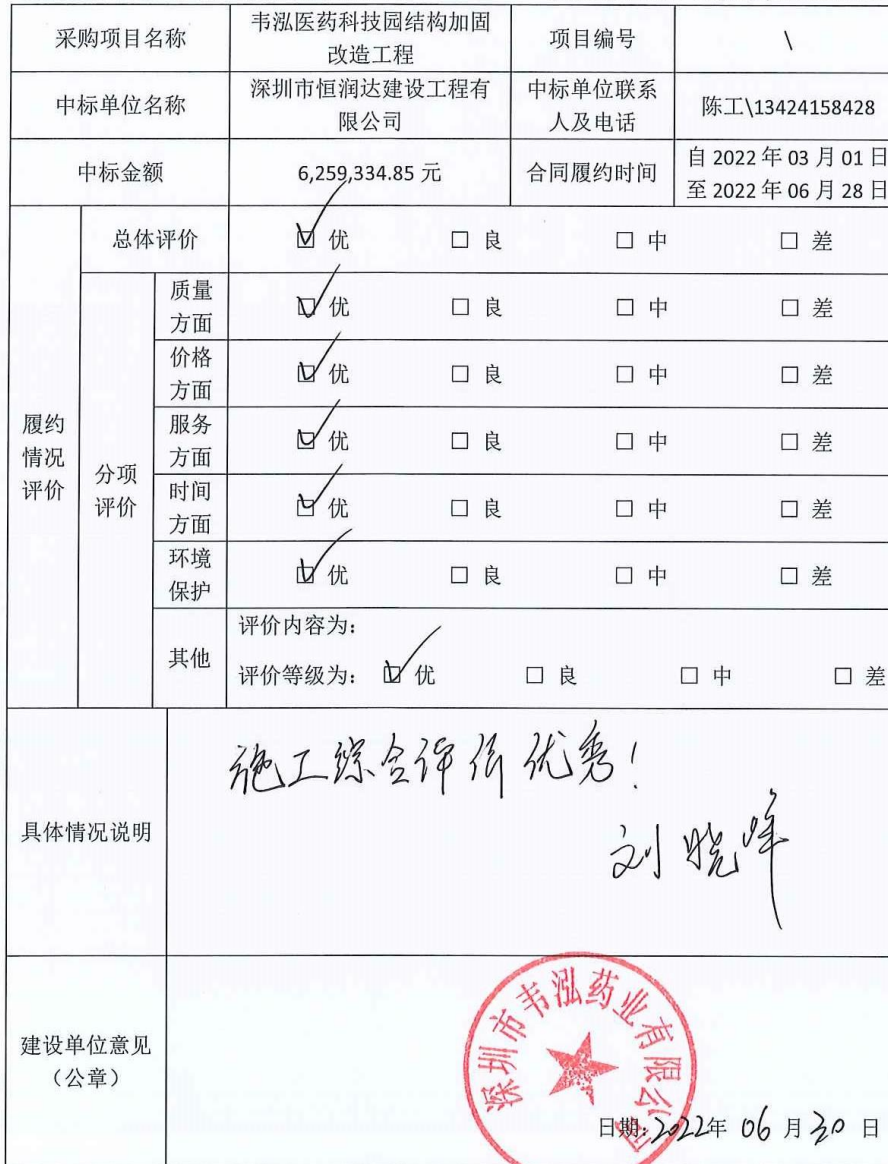 采购项目名称
韦泓医药科技园结构加固
改造工程
项目编号
\
中标单位名称
深圳市恒润达建设工程有
限公司
中标单位联系
人及电话
陈工\13424158428
中标金额
6,259,334.85 元
合同履约时间
自 2022 年 03 月 01 日
至 2022 年 06 月 28 日
履约
情况
评价
总体评价
☑ 优 □ 良 □ 中 □ 差
分项
评价
质量
方面
☑ 优 □ 良 □ 中 □ 差
价格
方面
☑ 优 □ 良 □ 中 □ 差
服务
方面
☑ 优 □ 良 □ 中 □ 差
时间
方面
☑ 优 □ 良 □ 中 □ 差
环境
保护
☑ 优 □ 良 □ 中 □ 差
其他
评价内容为：
评价等级为： ☑ 优 □ 良 □ 中 □ 差
具体情况说明
施工综合评价优秀！
刘晓峰
建设单位意见
（公章）
深圳市韦泓药业有限公司
日期：2022年 06 月 30 日